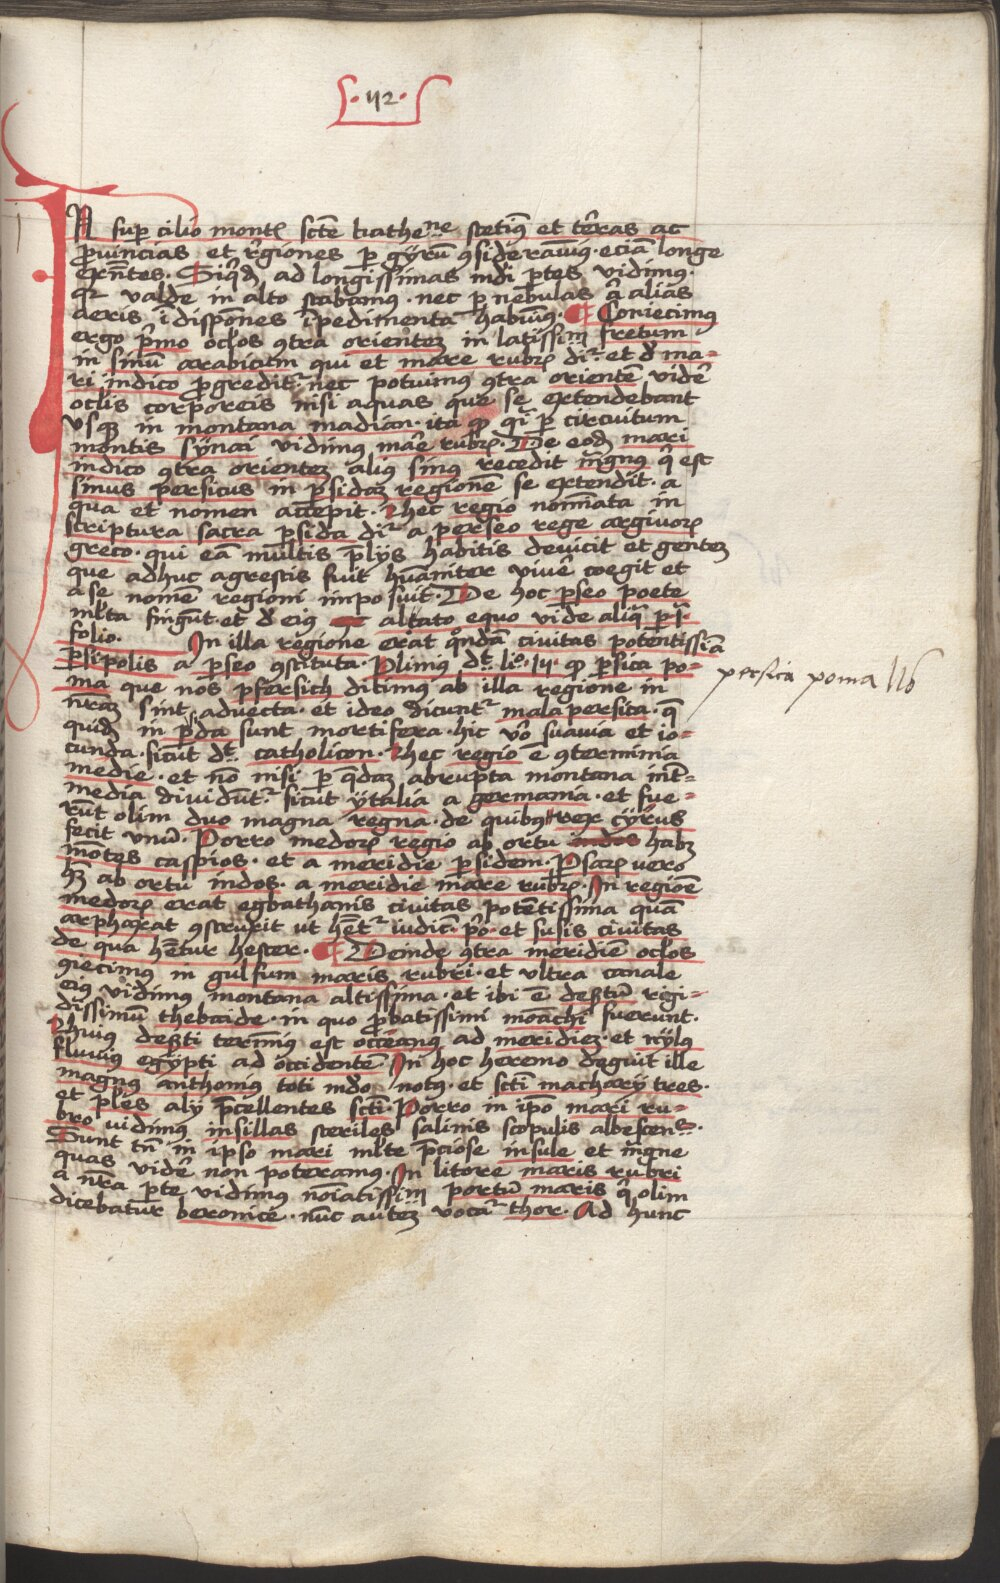 ·112·
IN sup cilio montꝭ sctē kathene stetim᷒ et tr̄ras ac
ꝓuincias et rēgiones ꝑ gyrū ꝯsiderauim᷒· eciā longe
exn̄tes· Siq̄dē ad longissimas mūdi ꝑtes vidimus·
qꝛ valde in alto stabamus· nec ꝑ nebulas ā alias
aeris īdispōnes īpedimenta habuim᷒· ¶ Coniecimus
ergo pͥmo oc̄los ꝯtra orientem in latissimū fretum
in sinū arabicum qui et mare rubrꝝ dꝛ̄· et d̄ ma-
ri indico ꝓgreditꝛ nec potuimus ꝯtra orientē vidē
oc̄lis corporeis nisi aquas que se extendebant
vsqꝫ in montana madian· ita ꝙ qͣi ꝑ circuitum
montis synai vidimus mar̄e rubrꝝ· De eodē mari
indico ꝯtra orientem ali᷒ sin᷒ recedit magn᷒ qͥ est
sinus persicus in ꝑsidaꝫ regionē se extendit· a
qua et nomen accepit· Hec regio nomīata in
scriptura sacra ꝑsida dꝛ̄ a perseo rege argiuorꝝ
greco· qui eā multis p̄lijs habitis deuicit et gentem
que adhuc agrestis fuit hūaniter viuē coegit et
a se nomē regioni imposuit· De hoc ꝑseo poete
ml̄ta fingūt· et d̄ ei᷒ altato equo vide aliqͣ pͥ
folio· In illa regione erat qͦndā ciuitas potentissīa
ꝑsipolis a ꝑseo ꝯstituta· Plinius dt̄ liͦ· ꝙ ꝑsica po-
ma que nos pfersich dicimus ab illa regione in
nr̄am sint aduecta· et ideo dicuntꝛ mala persica· q̄
quidē in ꝑsida sunt mortifera· hic vͦo suauia et io-
cunda· sicut dt̄ catholicon· Hec regio ē ꝯterminia
medie· et nō nisi ꝑ q̄dam abrupta montana int̄-
media diuidūtꝛ sicut ytalia a germania· et fue-
rūt olim duo magna regna· de quibꝰ rex cyrus
fecit vnū· Porro medorꝝ regio ab ortu indos habꝫ
mōtes caspios· et a meridie ꝑsidem· Psarꝝ vero
hꝫ ab ortu indos· a meridie mare rubrꝝ· In regiōe
medorꝝ erat egbathanis ciuitas potētissīma quā
arphaxat ꝯstruxit ut hētꝛ iudic̄· pͥo· et susis ciuitas
de qua hētur hester· ¶ Deinde ꝯtra meridiē oc̄los
ꝯiecimus in gulfum maris rubri· et vltra canale
ei᷒ vidimus montana altissima· et ibi ē desertū rigi-
dissimū thebaide· in quo ꝓbatissimi monachi fuerunt·
Huius deserti termin᷒ est occean᷒ ad meridiem· et nyl᷒
fluuius egypti ad occidentē· In hoc heremo deguit ille
magn᷒ anthonius toti mūdo not᷒· et sctī macharij tres·
et pl̄es alij p̄cellentes sctī· Porro in ip̄o mari ru-
bro vidimus insillas steriles salinis scopulis albescens·
Sunt tn̄ in ipso mari ml̄te p̄ciose insule et mague
quas vidē non poteramus· In litore maris rubri
a nr̄a ꝑte vidimus noīatissimū portū maris qͥ olim
dicebatur beronice· nūc autem vocaꝛ thor· Ad hunc
persica poma